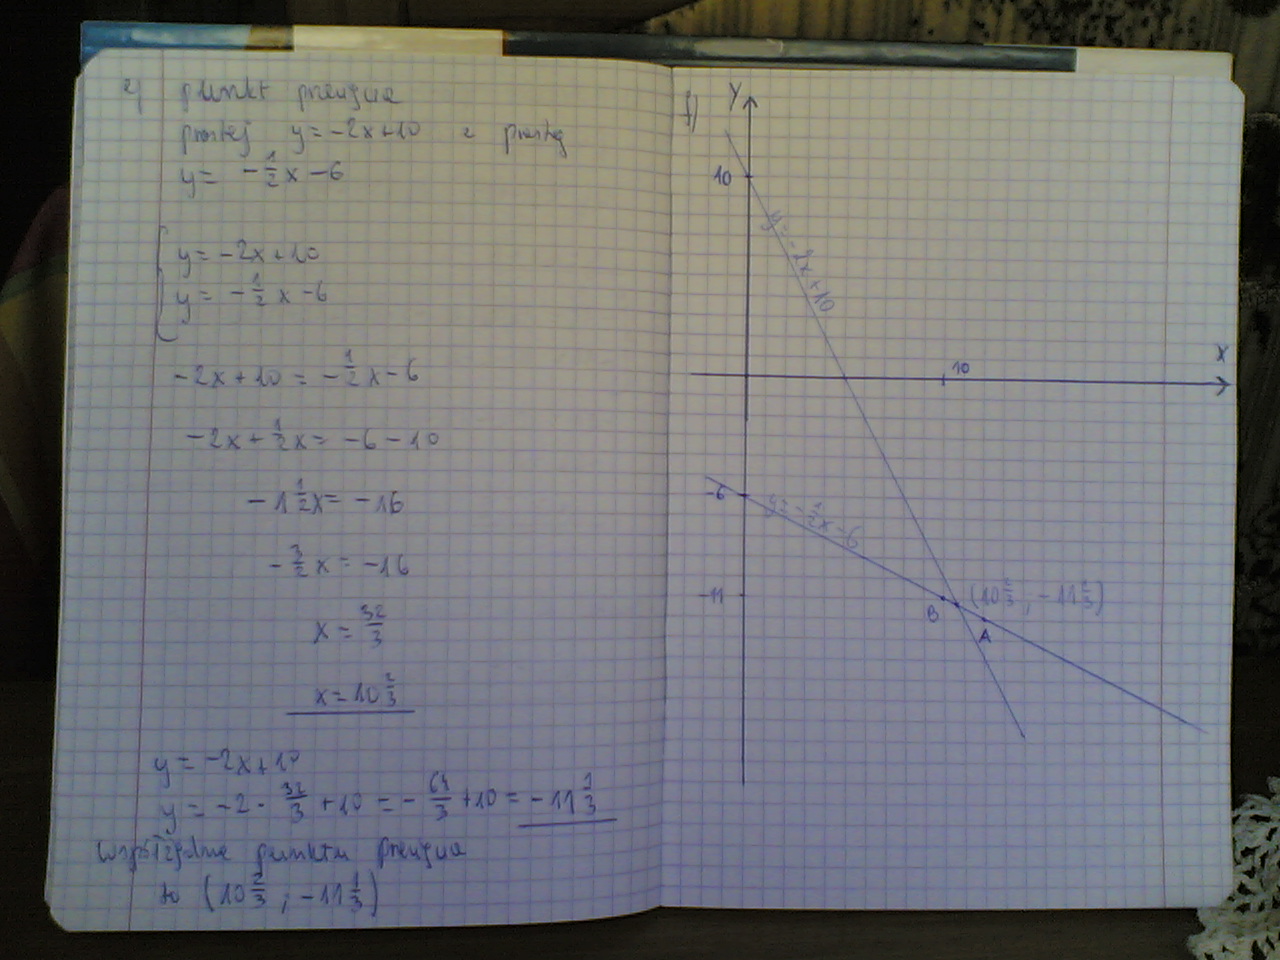 e) punkt przecięcia
prostej y = -2x+10 z prostą
y = -1/2x - 6
y = -2x+10
y = -1/2 x - 6
-2x + 10 = -1/2x - 6
-2x + 1/2x = -6 - 10
-1 1/2x = -16
-3/2x = -16
x = 32/3
x = 10 2/3
y = -2x+10
y = -2 · 32/3 + 10 = -64/3 + 10 = -11 1/3
Współrzędne punktu przecięcia
to (10 2/3 ; -11 1/3)
f)
Y
10
y = -2x+10
X
10
-6
y = -1/2x - 6
-11
(10 2/3 ; -11 1/3)
B
A